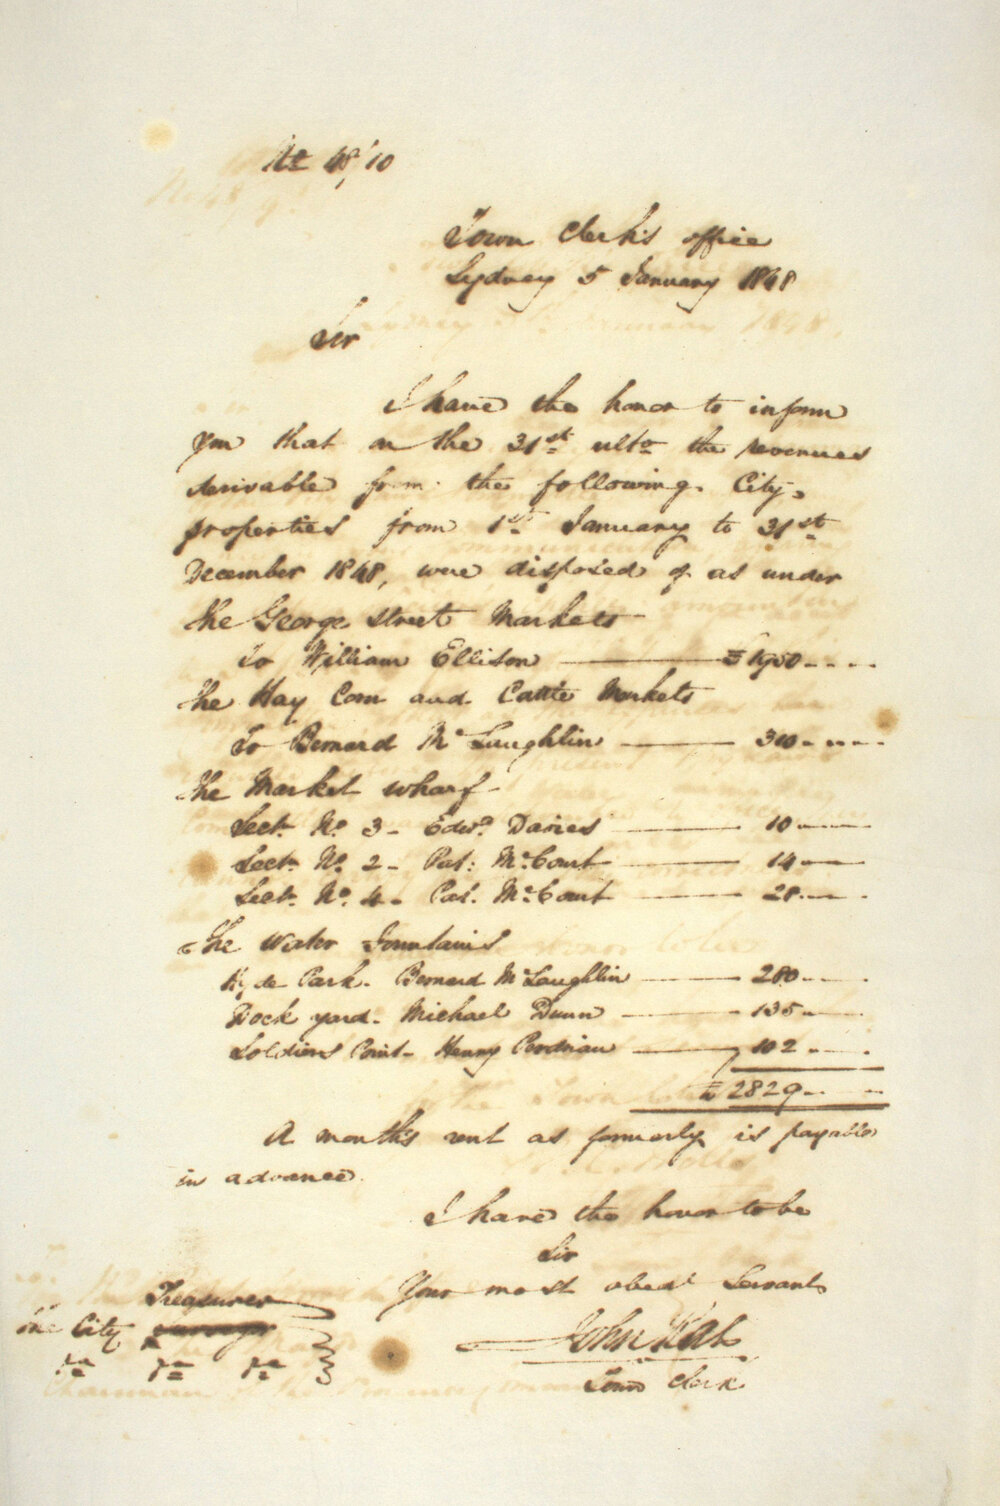 No 48/10
Town Clerk's office
Sydney 5 January 1848
Sir
I have the honor to inform
you that on the 31st ulto the revenues
derivable from the following City
properties from 1st January to 31st
December 1848, were disposed of as under
The George street Markets
To William Ellison £1950
The Hay Corn and Cattle Markets
To Bernard McLaughlin 310
The Market wharf
Sect. No. 3 - Edwd Davies 10
Sect. No. 2 - Pat: McCourt 14
Sect. No. 4 - Pat. McCourt 28
The Water Fountains
Hyde Park. Bernard McLaughlin 280
Dock yard. Michael Dunn 135
Soldiers Point - Henry Perdriau 102
£2829
A month's rent as formerly is payable
in advance.
I have the honor to be
Sir
Your most obedt Servant
John
Town Clerk
Treasurer
The City